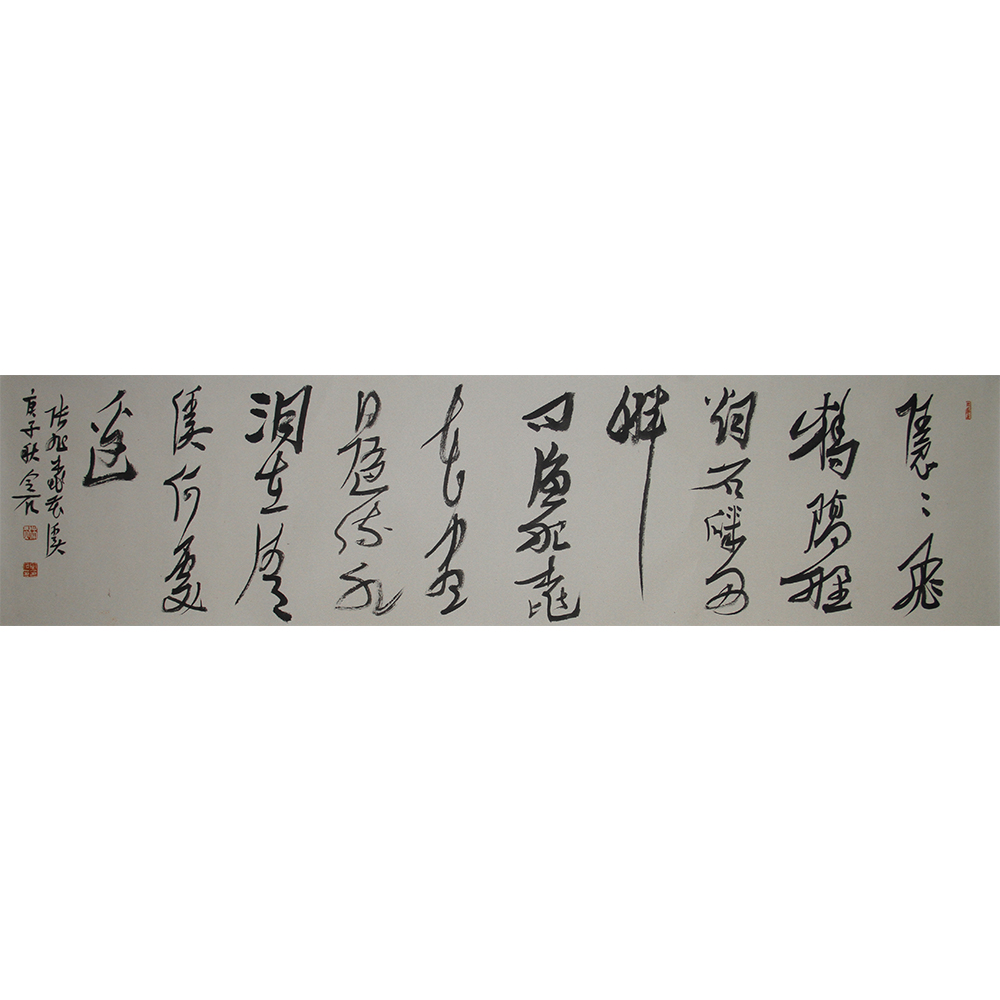 隐〻飛
橋隔野
烟石磯西
畔
问漁船桃
花盡
日随流水
洞在清
溪何處
邊
张旭桃花溪
庚子秋